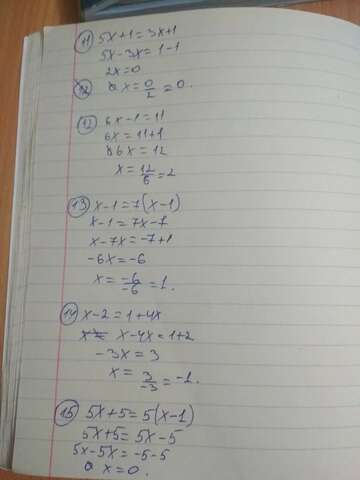 11 5x+1=3x+1
5x-3x=1-1
2x=0
x=0/2=0.
12 6x-1=11
6x=11+1
6x=12
x=12/6=2
13 x-1=7(x-1)
x-1=7x-7
x-7x=-7+1
-6x=-6
x=-6/-6=1.
14 x-2=1+4x
x-4x=1+2
-3x=3
x=3/-3=-1.
15 5x+5=5(x-1)
5x+5=5x-5
5x-5x=-5-5
x=0.